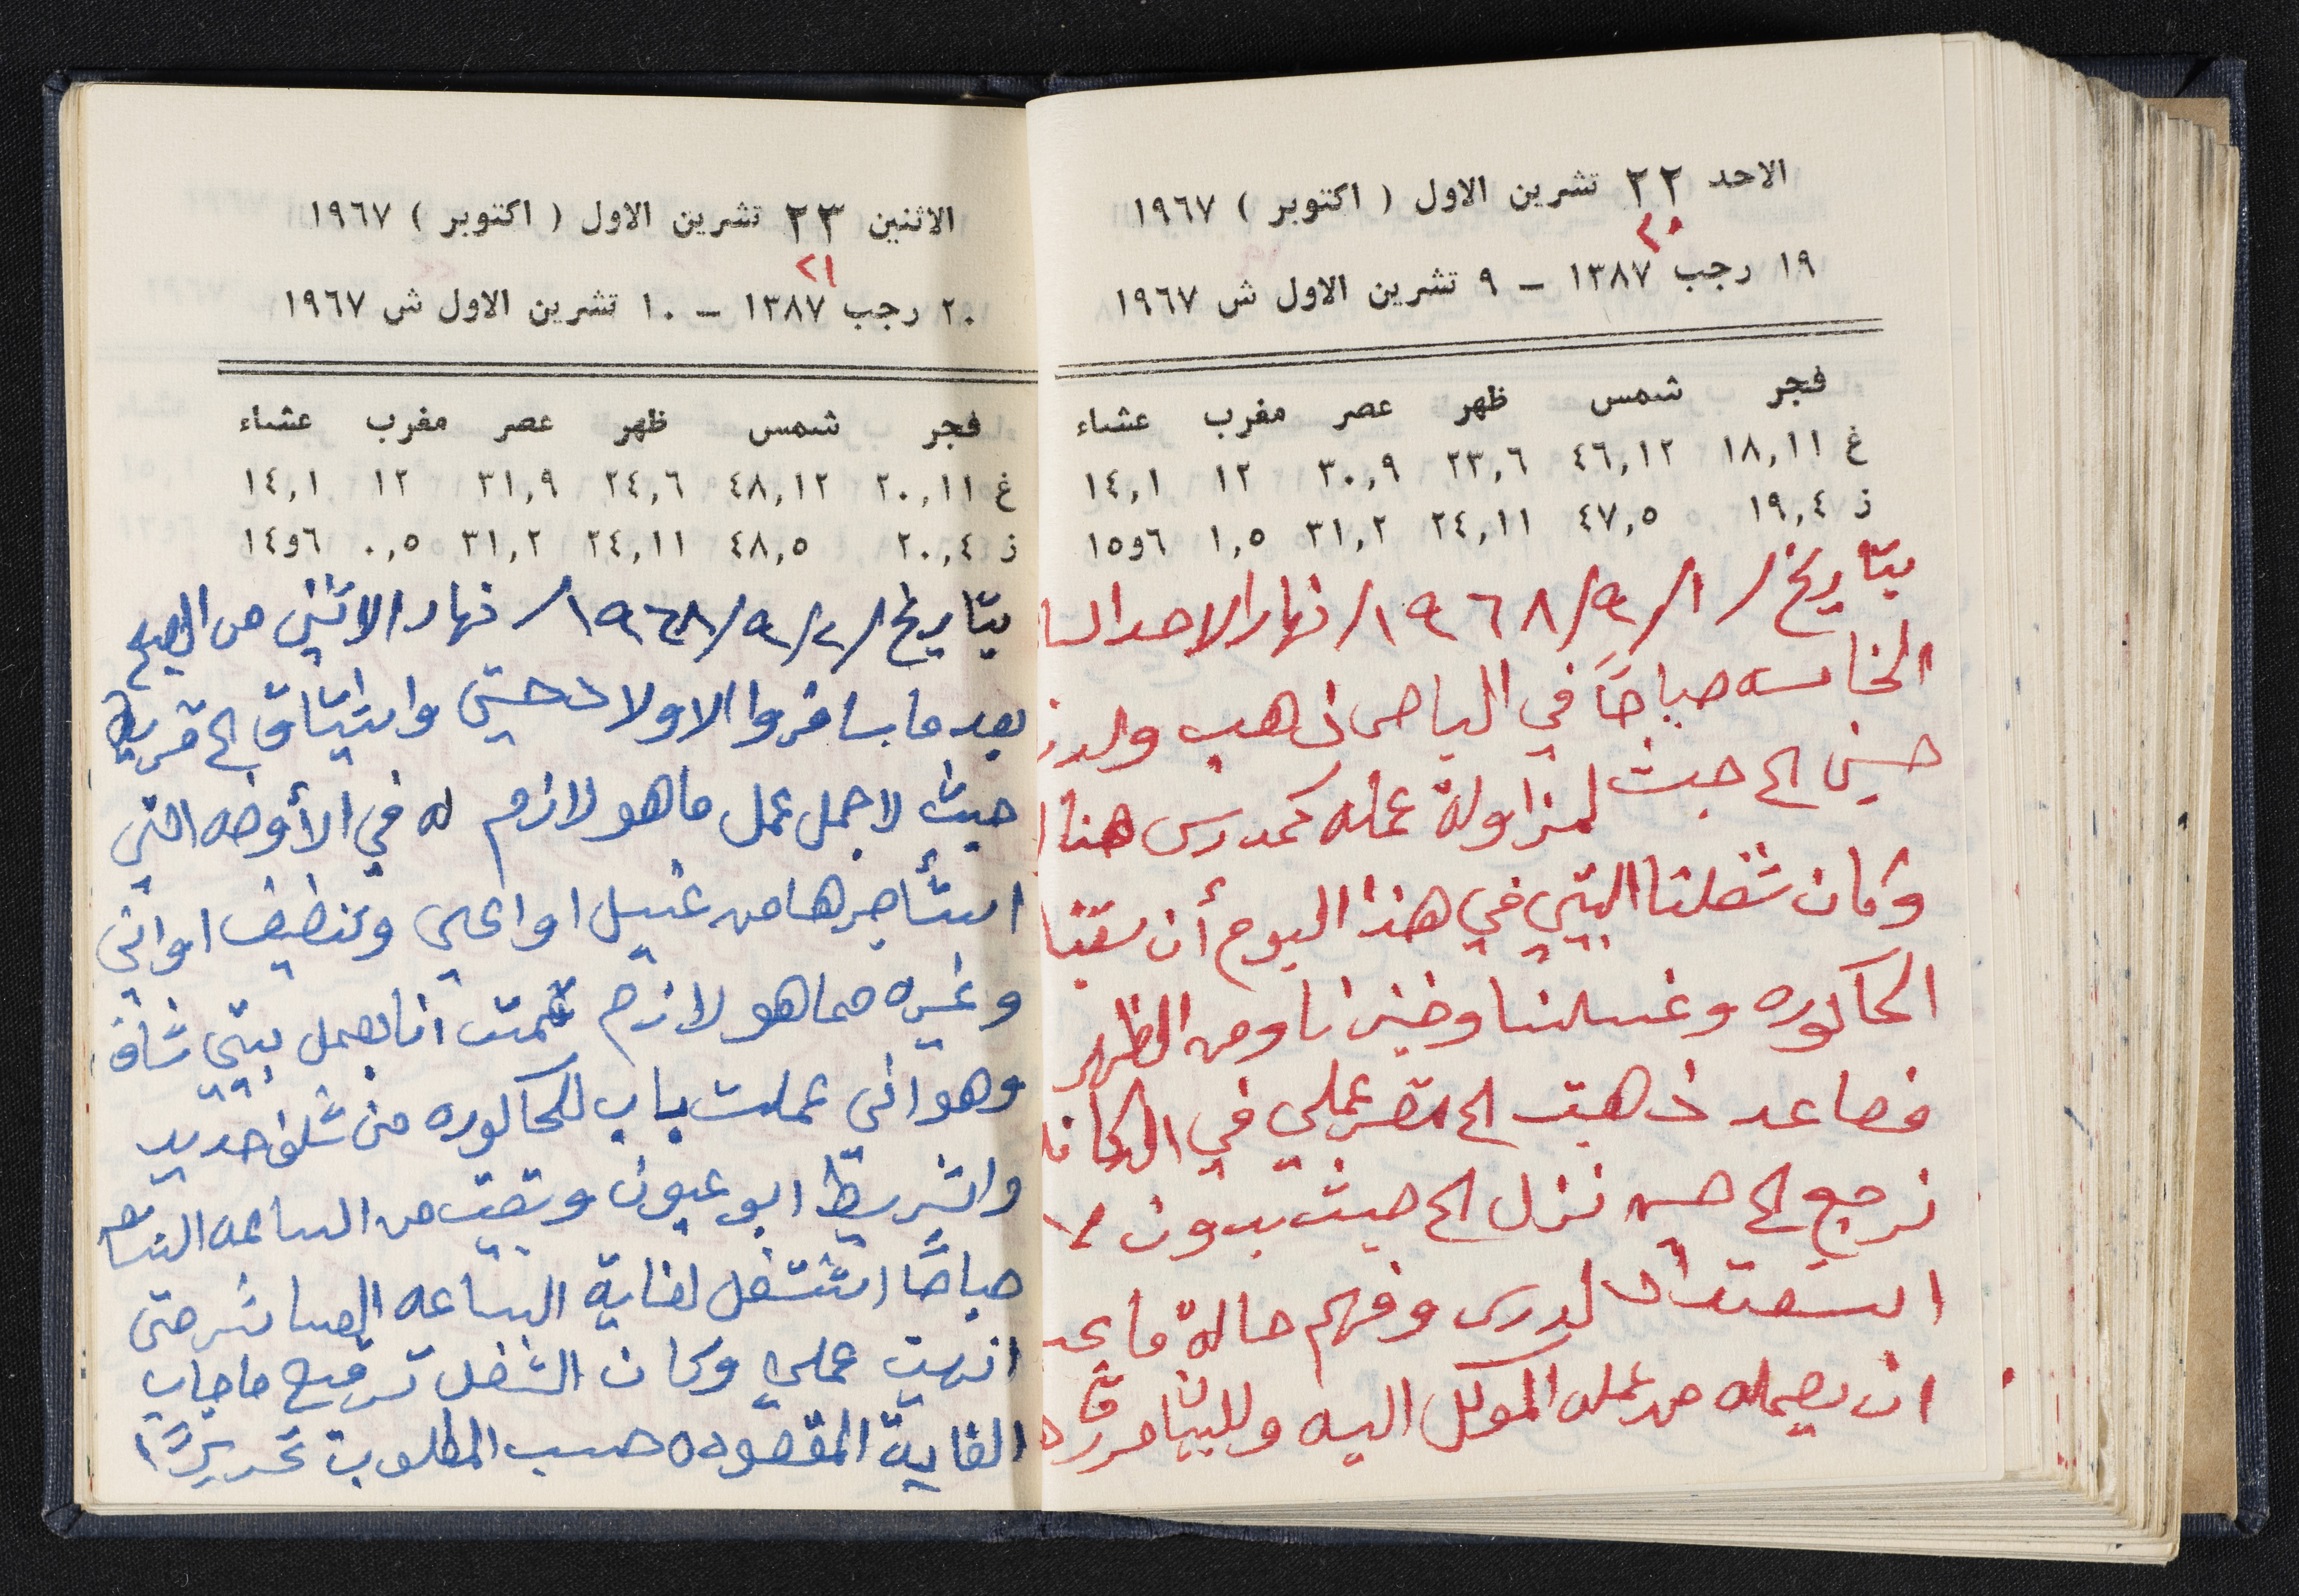 الاحد ٢٢ تشرين الاول ( اكتوبر ) ١٩٦٧
٢٠
١٩ رجب ١٣٨٧ – ٩ تشرين الاول ش ١٩٦٧
فجر شمس ظهر عصر مغرب عشاء
غ ١٨,١١ ٤٦,١٢ ٢٣,٦ ٣٠,٩ ١٢ ١٤,١
ز ١٩,٤ ٤٧,٥ ٢٤,١١ ٣١,٢ ١,٥ ٦و١٥
بتاريخ / ١ /٩/ ١٩٦٨/ نهار الاحد السا
الخامسه صباحاً في الباص ذهب ولدنا
حسين الى جبث لمزاولة عمله كمدرس هنا
وكان شغلنا البيتي في هذا اليوم أن سقينا
الحاكوره وغسلنا وخبزنا ومن الظهر
فصاعد ذهبت الى مقر عملي في
نرجع الى حسين نزل الى حيث بدون
استعداد لدرس وفهم حالة ما
ان يعمله من عمله الموكل اليه وللبيان
الاثنين ٢٣ تشرين الاول ( اكتوبر ) ١٩٦٧
٢١
٢٠ رجب ١٣٨٧ – ١٠ تشرين الاول ش ١٩٦٧
فجر شمس ظهر عصر مغرب عشاء
غ ٢٠,١١ ٤٨,١٢ ٢٤,٦ ٣١,٩ ١٢ ١٤,١
ز ٢٠,٤ ٤٨,٥ ٢٤,١١ ٣١,٢ ٠,٥ ٦و١٤
بتاريخ /٢/٩/١٩٦٨/ نهار الاثنين من الصبح
بعد ما سافروا الاولاد حسين واشتياق الى قرية
جيث لاجل عمل ما هو لازم له في الأوضه التي
استأجرها من غسيل اواعي وتنظيف اواني
وغيره مما هو لازم قمت انا بعمل بيتي شاق
وهو اني عملت باب للحاكوره من شلف حديد
واشريط ابو عيون وبقيت من الساعه
صباحًا اشتغل لغاية الساعه العاشر حتى
انهيت عملي وكان الشغل ترقيع ما جاب
الغاية المقصوده حسب المطلوب تحريرًا